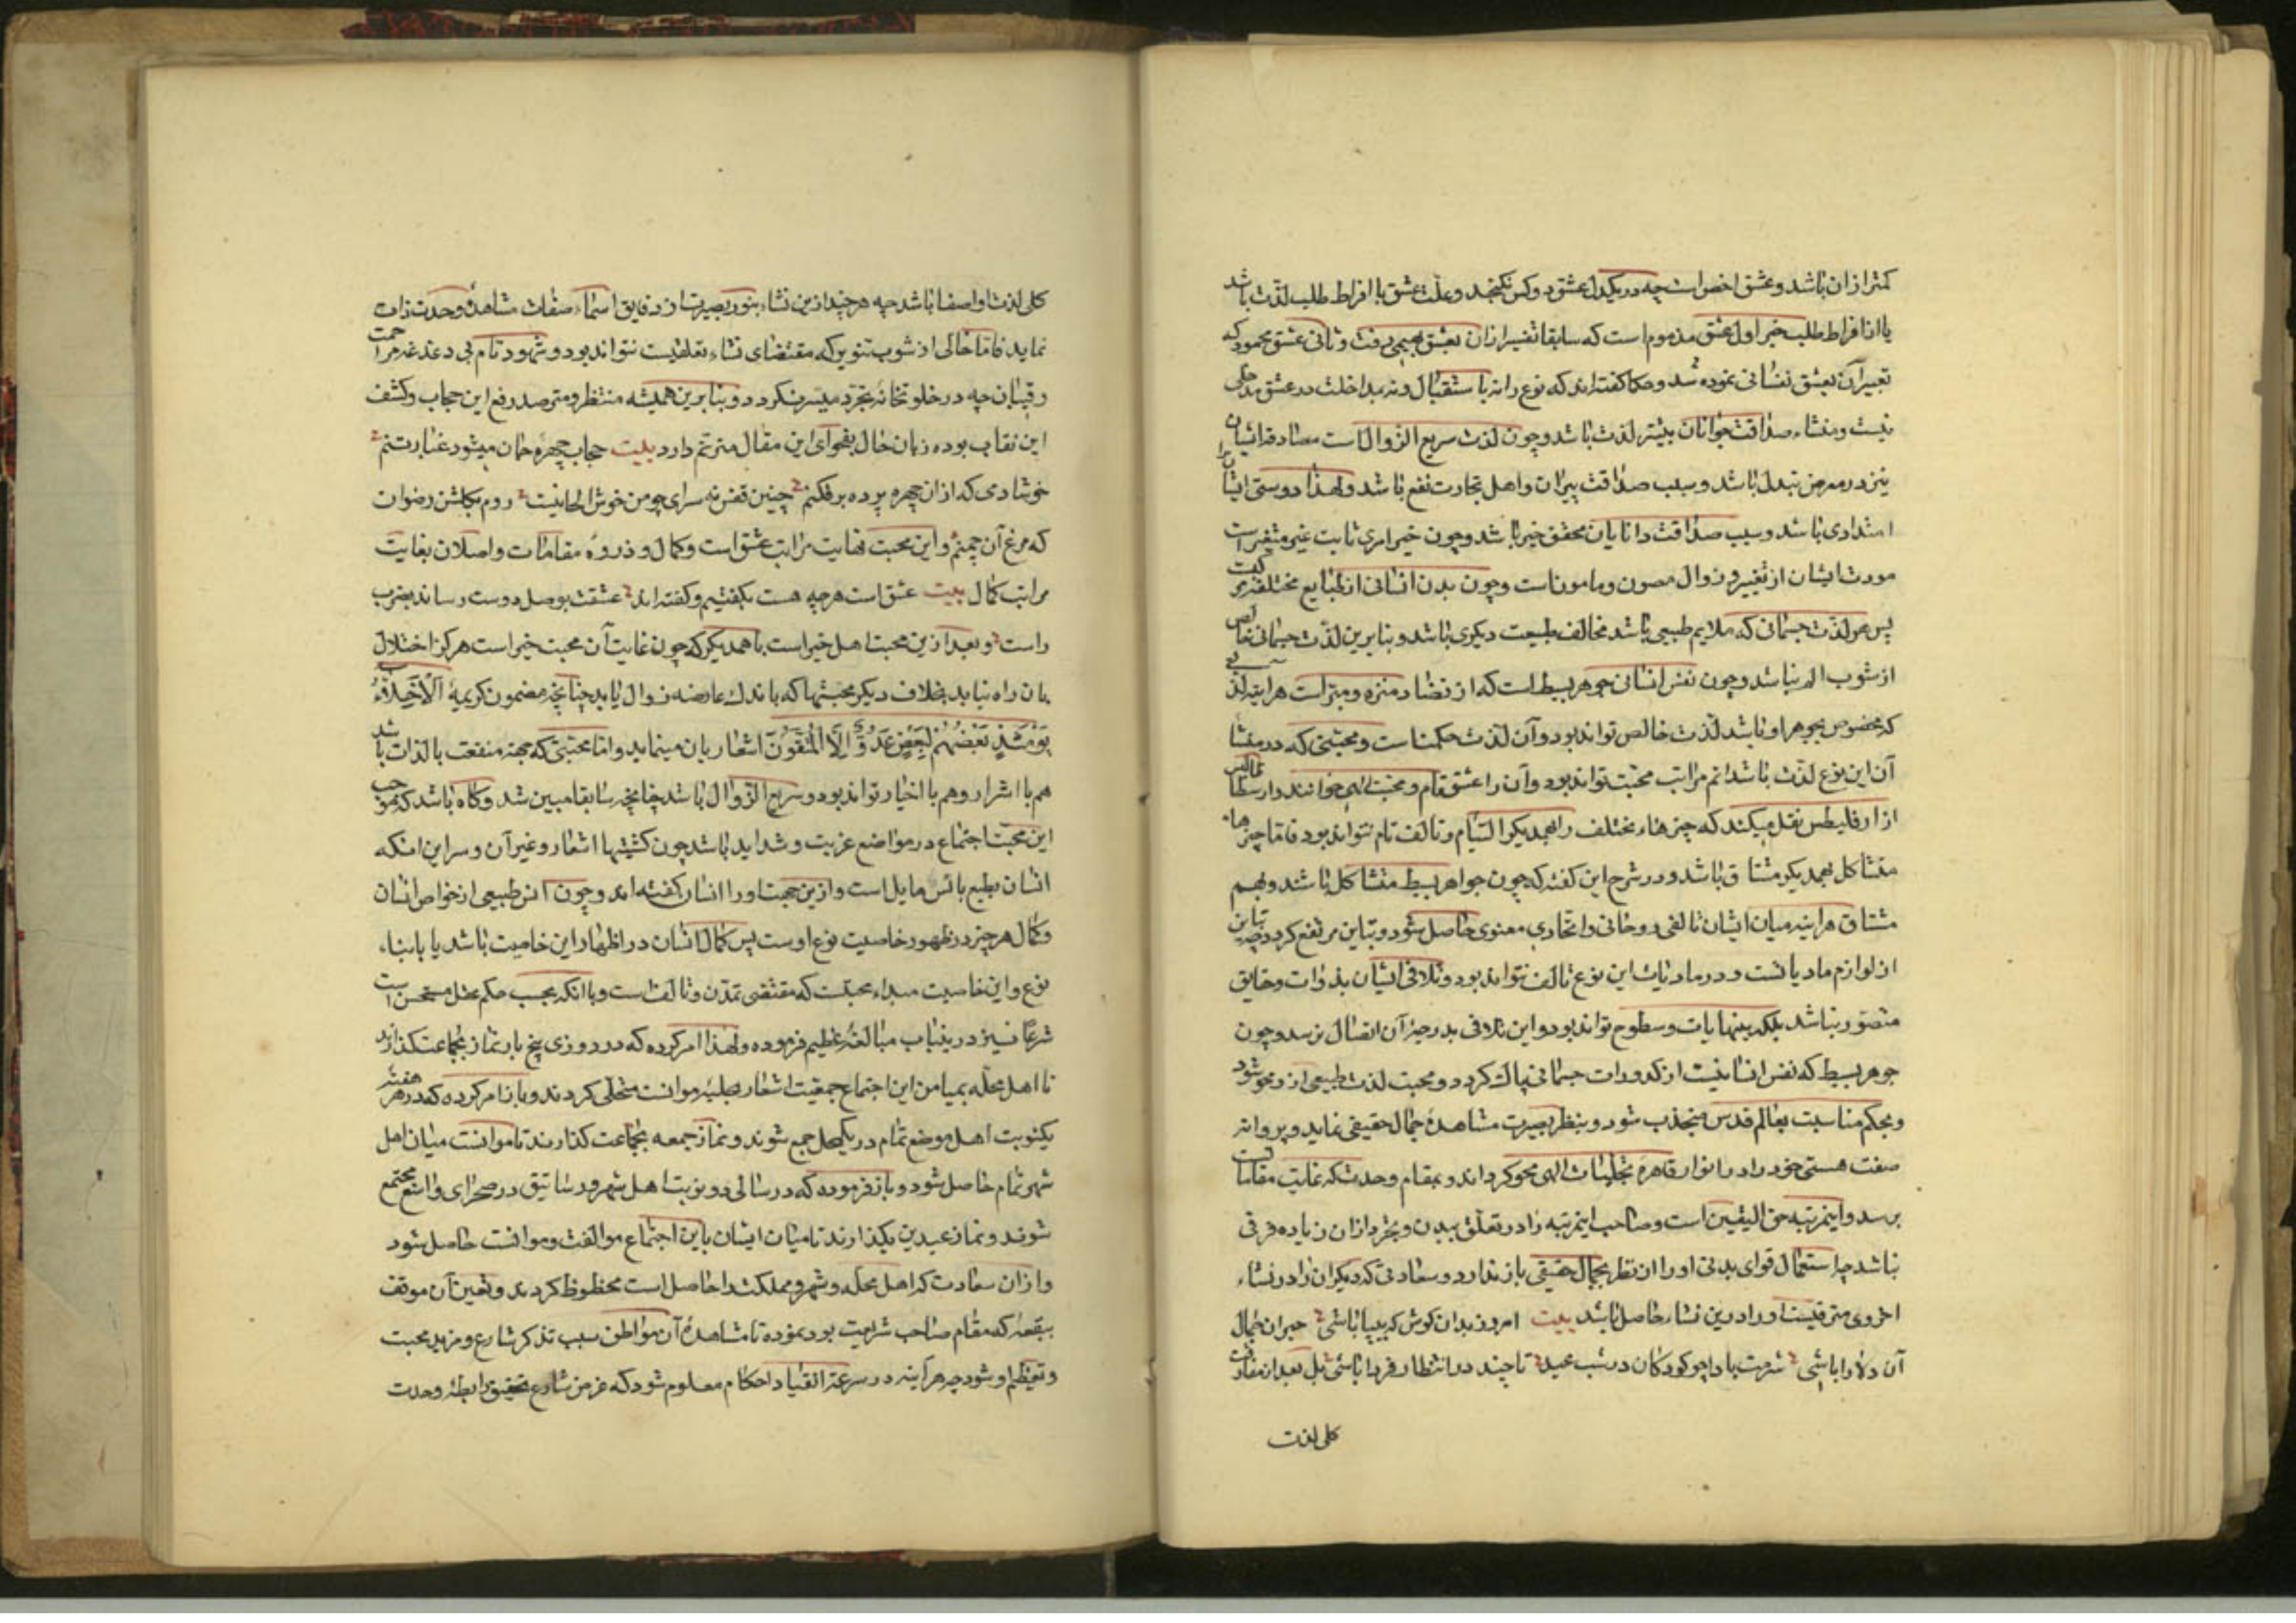 کمتر ازان باشد و عشق اخص است چه در یکدل عشق دو کس نکنجد و علت عشق یا افراط طلب لذّت باشد
یا ازافراط طلب خیر اول عشق مذموم است که سابقا تفسیر ازان بعشق بهیمی رفت و ثانی عشق محمود که
تعبیر آن بعشق نفسانی نموده شد و حکما کفته اند که نوع را نه باستقبال و نه بمداخلت در عشق مدخلی
نیست و منشاء صداقت جوانان بیشتر لذت باشد و چون لذت سریع الزوال است مصادقت ایشان
نیز در معرض تبدل باشد و سبب صداقت پیران و اهل تجارت نفع باشد و لهذا دوستی ایشان را
امتدادی باشد و سبب صداقت دانایان محقق خیر باشد و چون خیر امری ثابت غیر متغیر است
مودت ایشان از تغییر و زوال مصون و مامونست و چون بدن انسانی از طبایع مختلفه مرکبست
پس هر لذت جسمانی که ملایم طبیعی باشد مخالف طبیعت دیکری باشد و بنابرین لذّت جسمانی خالص
از شوب الم نباشد و چون نفس انسانی جوهر بسیط است که از تضاد منزه و مبّراست هر آینه لذتی
که مخصوص بجوهر او باشد لذّت خالص تواند بود و آن لذت حکمتست و محبتی که در منشا
آن این نوع لذت باشد اتم مراتب محبت تواند بود و آن را عشق تام و محبت الهی خوانند و ارسطاطالیس
از ارقلیطس نقل میکند که چیزهاء مختلف را بهمدیکر التیام و تالف تام نتواند بود فاما چیزهاء
متشاکل بهمدیکر مشتاق باشد و در شرح این کفته که چون جواهر بسیط متشاکل باشند و بهم
مشتاق هر اینه میان ایشان تالفی روحانی و اتحادی معنوی حاصل شود و تباین مرتفع کردد چه تباین
از لوازم مادیاتست و در مادیات این نوع تالف نتواند بود و تلاقی ایشان بذوات و حقایق
متصور نباشد بلکه بنهایات و سطوح تواند بود و این تلاقی بدرجهٔ آن اتصال نرسد و چون
جوهر بسیط که نفس انسانیست از کدورات جسمانی پاک کردد و محبت لذت طبیعی از و محو شود
و بحکم مناسبت بعالم قدس منجذب شود و بنظر بصیرت مشاهدهٔ جمال حقیقی نماید و پروانه
صفت هستی خود را در انوار قاهرهٔ تجلیات الهی محو کرداند و بمقام وحدت که غایت مقاماتست
برسد و اینمرتبه حق الیقین است و صاحب اینمرتبه را در تعلّق ببدن و تجرد ازان زیاده فرقی
نباشد چه استعمال قوای بدنی او را از نظر بجمال حقیقی باز ندارد و سعادتی که دیکران را در نشاء
اخروی مترقبست او را درین نشاء حاصل باشد بیت امروز بدان کوش که بینا باشی حیران جمال
آن دلارا باشی شرمت بادا چو کودکان در شب عید تا چند در انتظار فردا باشی بل بعد از مفارقت
کلی لذت
کلی لذت او اصفا باشد چه هر چند ازین نشاء بنور بصیرت از دقایق اسماء صفات مشاهدهٔ وحدت ذات
نماید فاما خالی از شوب تنوین که مقتضای نشاء تعلقیست نتواند بود و شهود تام بی دغدغه مزاحمت
رقیبان چه در خلوتخانهٔ تجرّد میسر نکردد و بنابرین همیشه منتظر و مترصد رفع این حجاب و کشف
این نقاب بوده زبان حال بفحوای این مقال مترنم دارد بیت حجاب چهرهٔ جان میشود غبار تنم
خوشا دمی که ازان چهره پرده بر فکنم چنین قفس نه سزای چو من خوش الحانیست روم بکلشن رضوان
که مرغ آن چمنم و این محبت نهایت مراتب عشق است و کمال و ذروهٔ مقامات واصلان بغایت
مراتب کمال بیت عشق است هر چه هست بکفتیم و کفته اند عشقت بوصل دوست رساند بضرب
راست و بعد ازین محبت اهل خیر است باهمدیکر که چون غایت آن محبت خیر است هرکز اختلال
بان راه نیابد بخلاف دیکر محبتها که باندک عارضه زوال یابد چنانچه مضمون کریمهٔ اَلْاَخِلَّاءُ
یَوْمَئِذٍ بَعْضُهُمْ لِبَعْضٍ عَدُوٌّ اِلَّا الْمُتَّقُونَ اشعار بان مینماید و امّا محبتی که جهة منفعت یا لذات باشد
هم با اشرار و هم با اخیار تواند بود و سریع الزوال باشد چنانچه سابقا مبین شد و کاه باشد که موجب
این محبت اجتماع در مواضع غربت و شداید باشد چون کشتیها اشعار و غیر آن و سر این انکه
انسان بطبع بانس مایل است و ازین جهت او را انسان کفته اند و چون انس طبیعی از خواص انسان
و کمال هر چیز در ظهور خاصیت نوع اوست پس کمال انسان در اظهار این خاصیت باشد با ابناء
نوع و این خاصیت مبداء محبتست که مقتضی تمدن و تالف است و با انکه بحسب حکم عقل مستحسن است
شرع نیز درینباب مبالغهٔ عظیم فرموده و لهذا امر کرده که در روزی پنج بار نماز بجماعت کذارند
تا اهل محله بمیامن این اجتماع جمعیت اشعار بحلیهٔ موانست متحلی کردند و باز امر کرده که در هر هفتهٔ
یکنوبت اهل موضع تمام در یکمحل جمع شوند و نماز جمعه بجماعت کذارند تا موانست میان اهل
شهر تمام حاصل شود و باز فرموده که در سالی دو نوبت اهل شهر و رساتیق در صحرای واسع مجتمع
شوند و نماز عیدین بکذارند تا میان ایشان باین اجتماع موالفت و موانست حاصل شود
و ازان سعادت که اهل محله و شهر و مملکت را حاصل است محظوظ کردند و تعیین آن موقف
ببقعهٔ که مقام صاحب شریعت بود نموده تا مشاهدهٔ آن مواطن سبب تذکر شارع و مزید محبت
و تعظیم او شود چه هر آینه در سرعة انقیاد احکام معلوم شود که غرض شارع تحقیق رابطهٔ وحدت